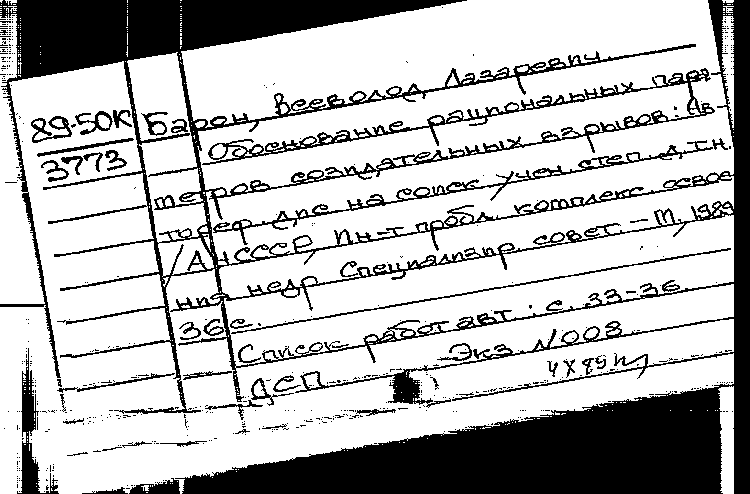 89-50К
3773
Барон, Всеволод Лазаревич.
Обоснование рациональных пара-
метров созидательных взрывов: Ав-
тореф. дис на соиск учен. степ. д.т.н.
/АН СССР, Ин-т пробл. комплекс. освое-
ния недр Специализир. совет. - М., 1989
36 с.
Список работ авт: с. 33-36.
ДСП. Экз. N 008